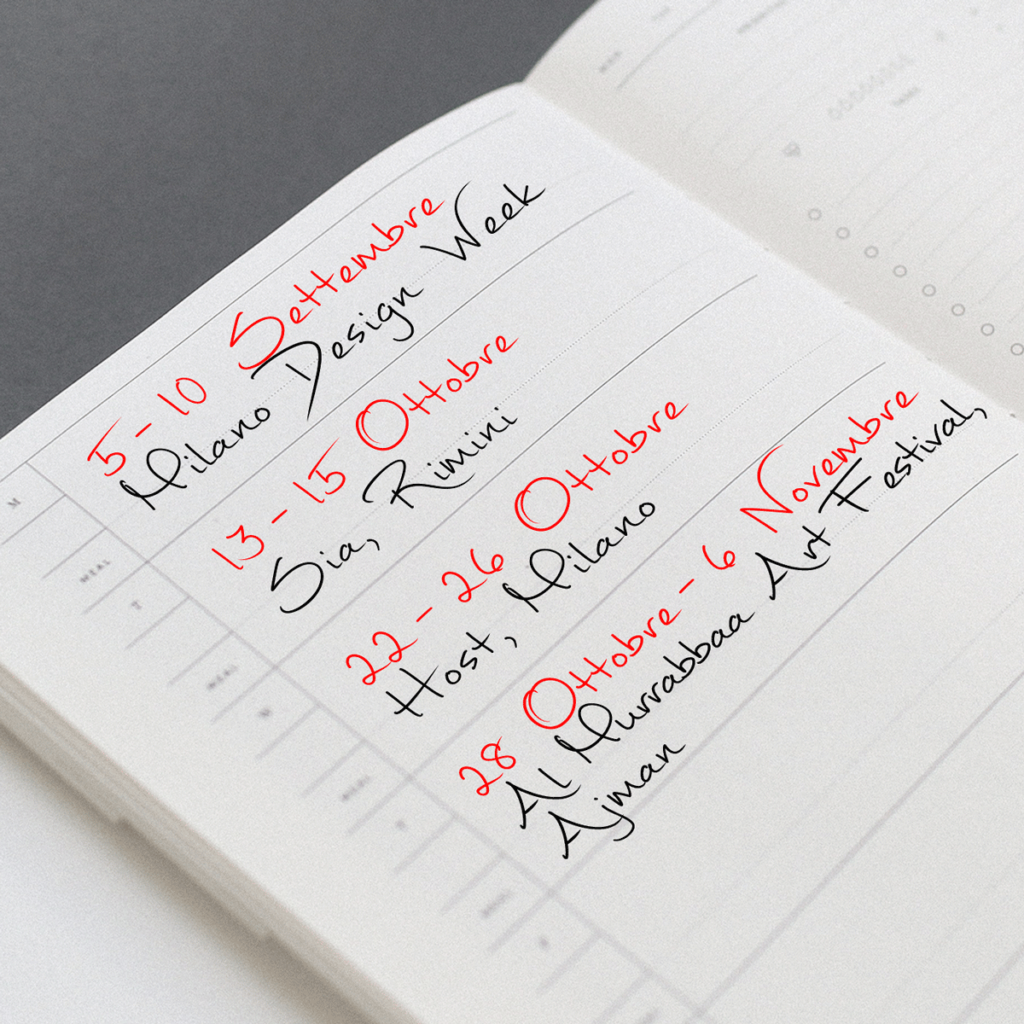 5 - 10 Settembre
Milano Design Week
13 - 15 Ottobre
Sia, Rimini
22 - 26 Ottobre
Host, Milano
28 Ottobre - 6 Novembre
Al Murrabbaa Art Festival,
Ajman
M
MEAL
T
MEAL
W
MEAL
T
MEAL